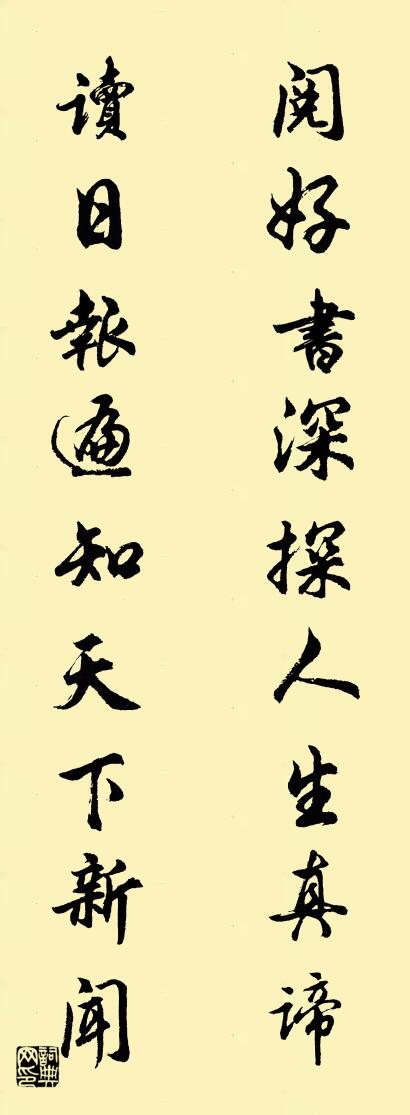 阅好書深探人生真谛
讀日報遍知天下新闻
詞典网印